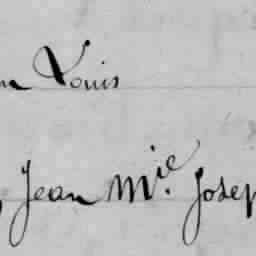 Louis
Jean M.ie Josep